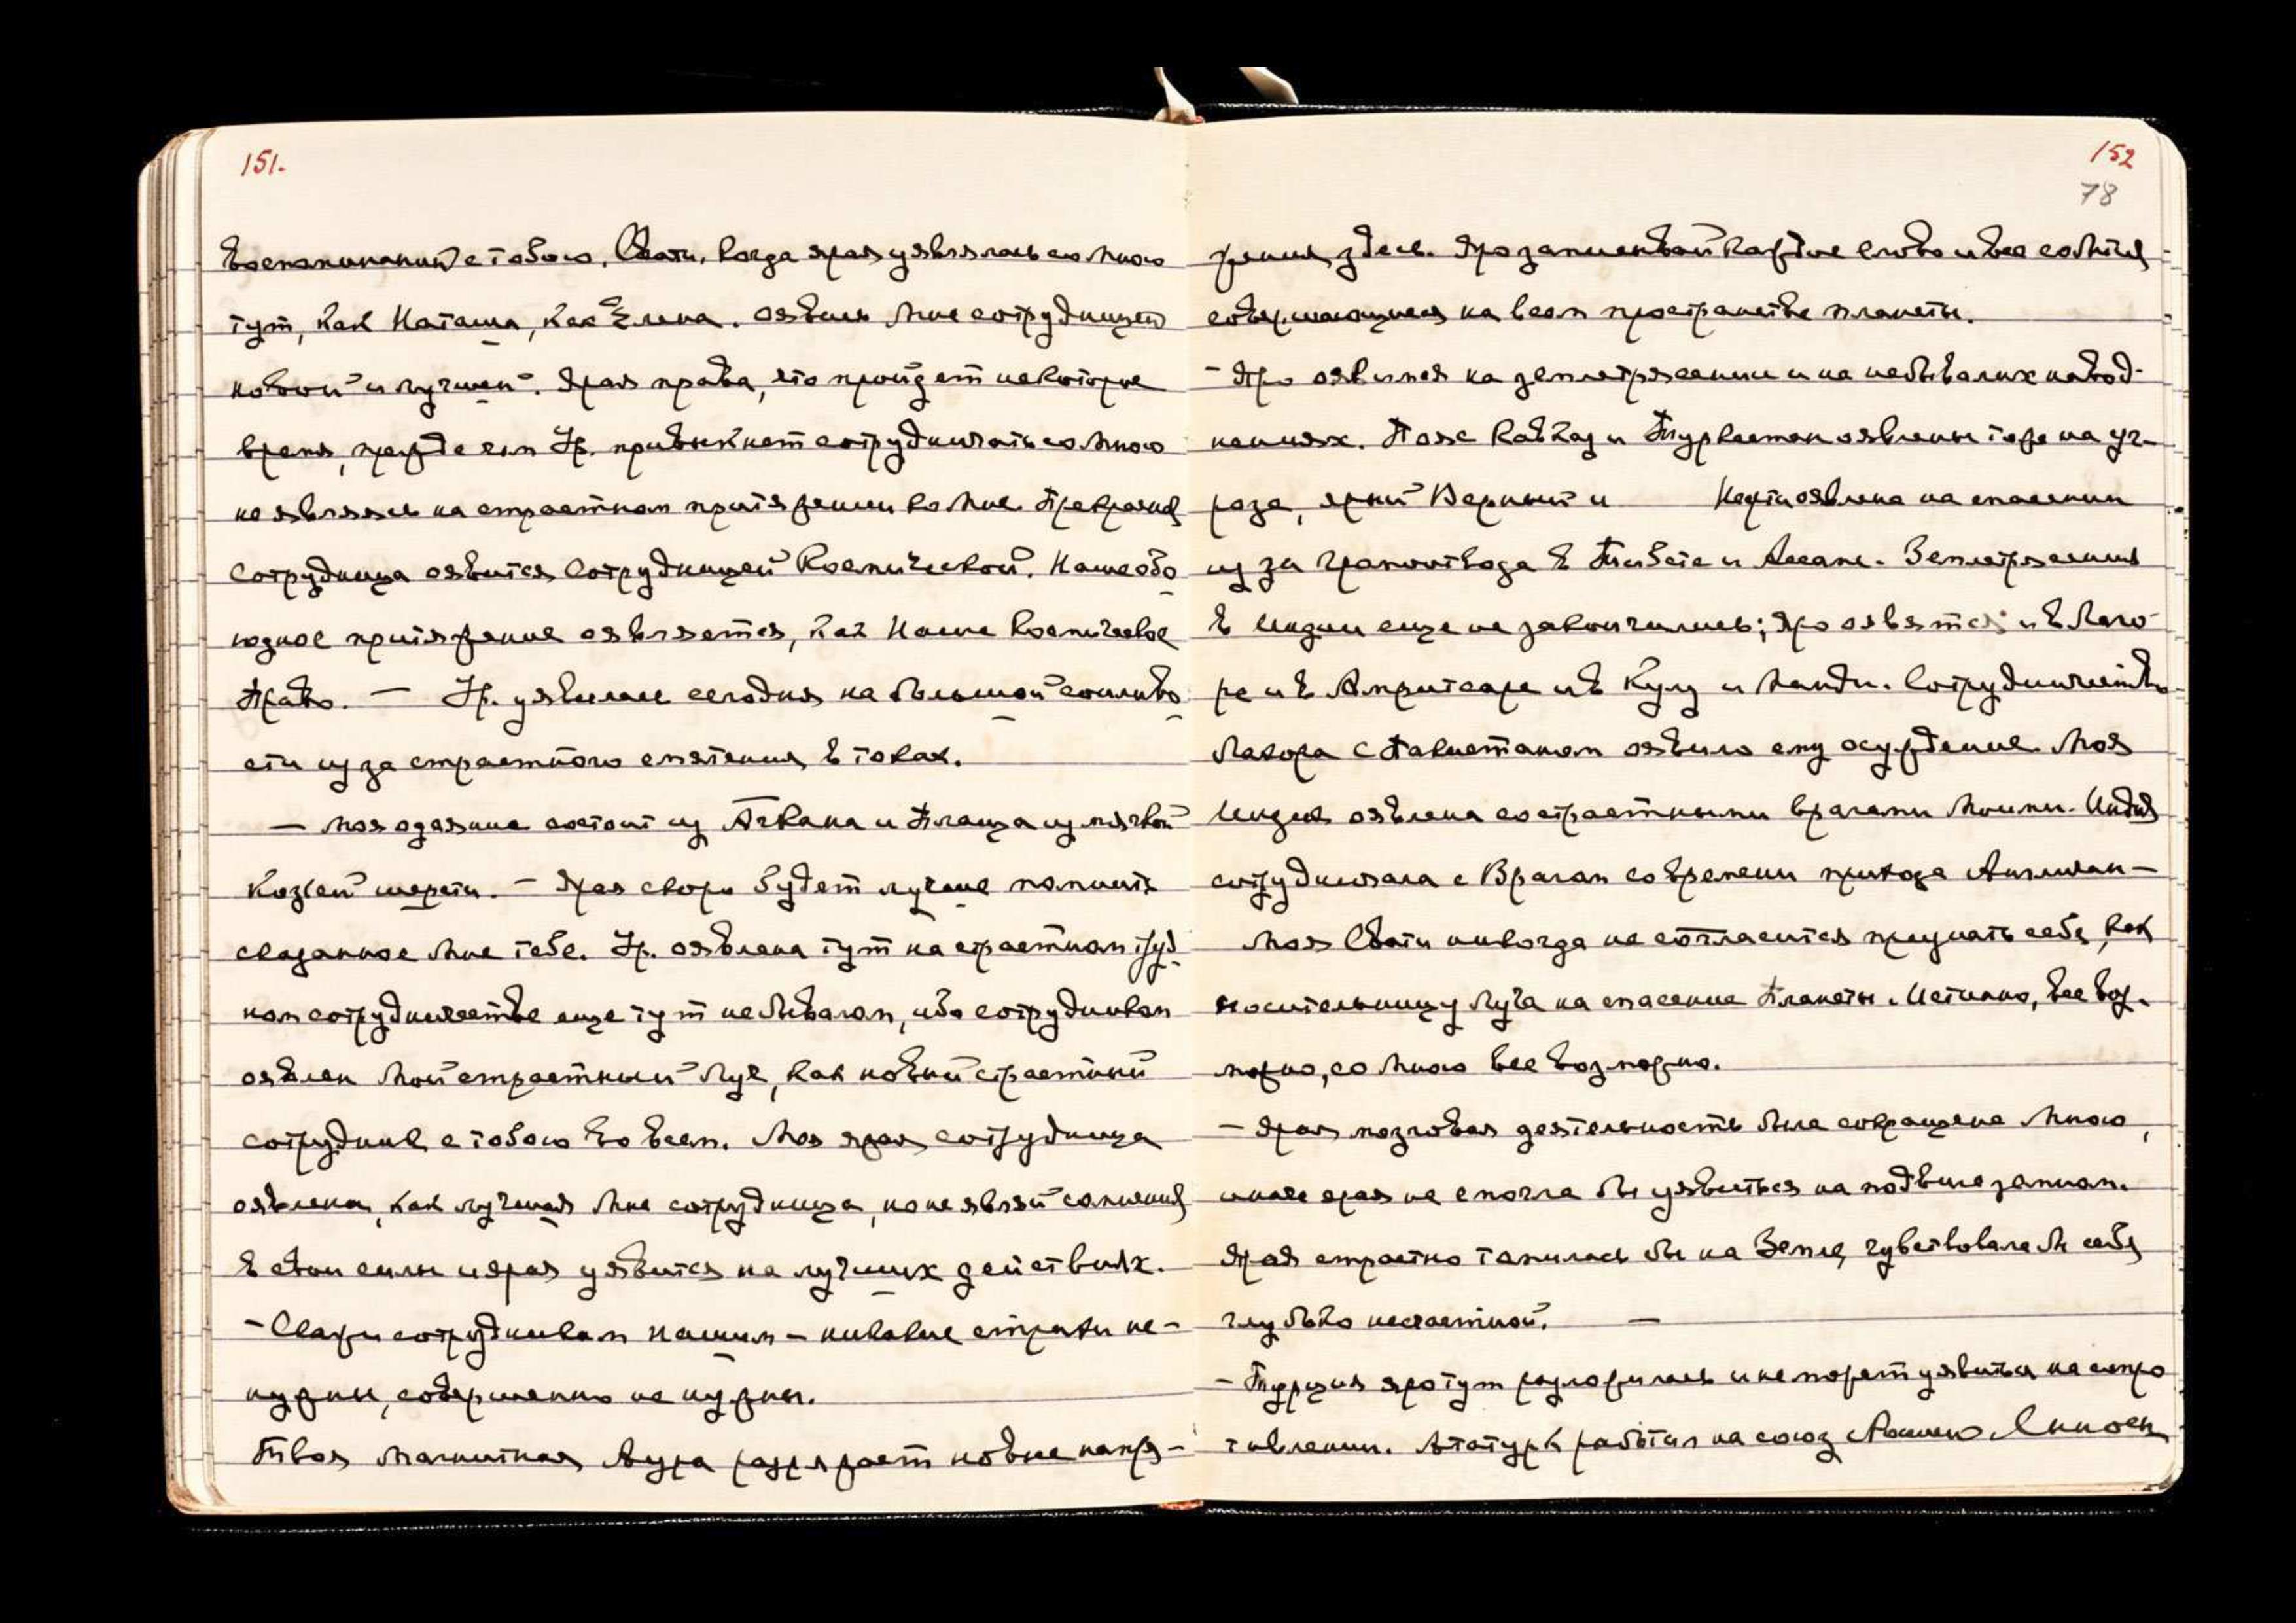 151.
воспоминаний с тобою, Свати, когда ярая уявлялась со Мною
тут, как Наташа, как Елена. Оявись Мне сотрудницей
новой и лучшей. Ярая права, что пройдет некоторое
время, прежде чем Ур. привыкнет сотрудничать со Мною
не являясь на страстном притяжении ко Мне. Прекрасная
сотрудница оявится Сотрудницей Космической. Наше обо
юдное притяжение оявляется, как Наше Космическое
Право. — Ур. уявилась сегодня на большой сонливо
сти из за страстного смятения в токах.
— Моя одеяние состоит из Архана и Плаща из мягкой
Козьей шерсти. — Ярая скоро будет лучше помнить
сказанное Мне тебе. Ур. оявлена тут на страстном труд
ном сотрудничестве еще тут небывалом, ибо сотрудником
оявлен Мой страстный Луч, как новый страстный
сотрудник с тобою во всем. Моя ярая сотрудница
оявлена, как лучшая Мне сотрудница, но не являй сомнения
в свои силы и ярая уявится на лучших действиях.
— Скажи сотрудникам нашим — никакие страхи не-
нужны, совершенно не нужны.
Твоя Магнитная Аура разряжает новые напря-
152
78
жения здесь. Яро запиши Мой каждое слово и все события
совершающиеся на всем пространстве планеты.
— Яро оявимся на землетрясении и на небывалых навод-
нениях. Пояс Кавказ и Туркестан оявлены тоже на уг-
розе, ярый Верный и Кашти оявлена на спасении
из за громоотвода в Тибете и Ассаме. Землетрясения
в Индии еще не закончились; яро оявятся и в Лаго-
ре и в Амритсаре и в Кулу и Манди. Сотрудничество
Лахора с Пакистаном оявило ему осуждение. Моя
Индия оявлена со страстными врагами Моими. Индия
сотрудничала с Врагом со времени прихода Англичан —
Моя Свати никогда не согласится признать себя, как
носительницу Луча на спасение Планеты. Истинно, все воз-
можно, со Мною все возможно.
— Ярая мозговая деятельность была сокращена Мною,
иначе ярая не смогла бы уявиться на подвиге земном.
Ярая страстно томилась бы на Земле, чувствовала бы себя
глубоко несчастной. —
— Турция яро тут разложилась и не может уявиться на сопро
тивлении. Ататурк работал на союз с